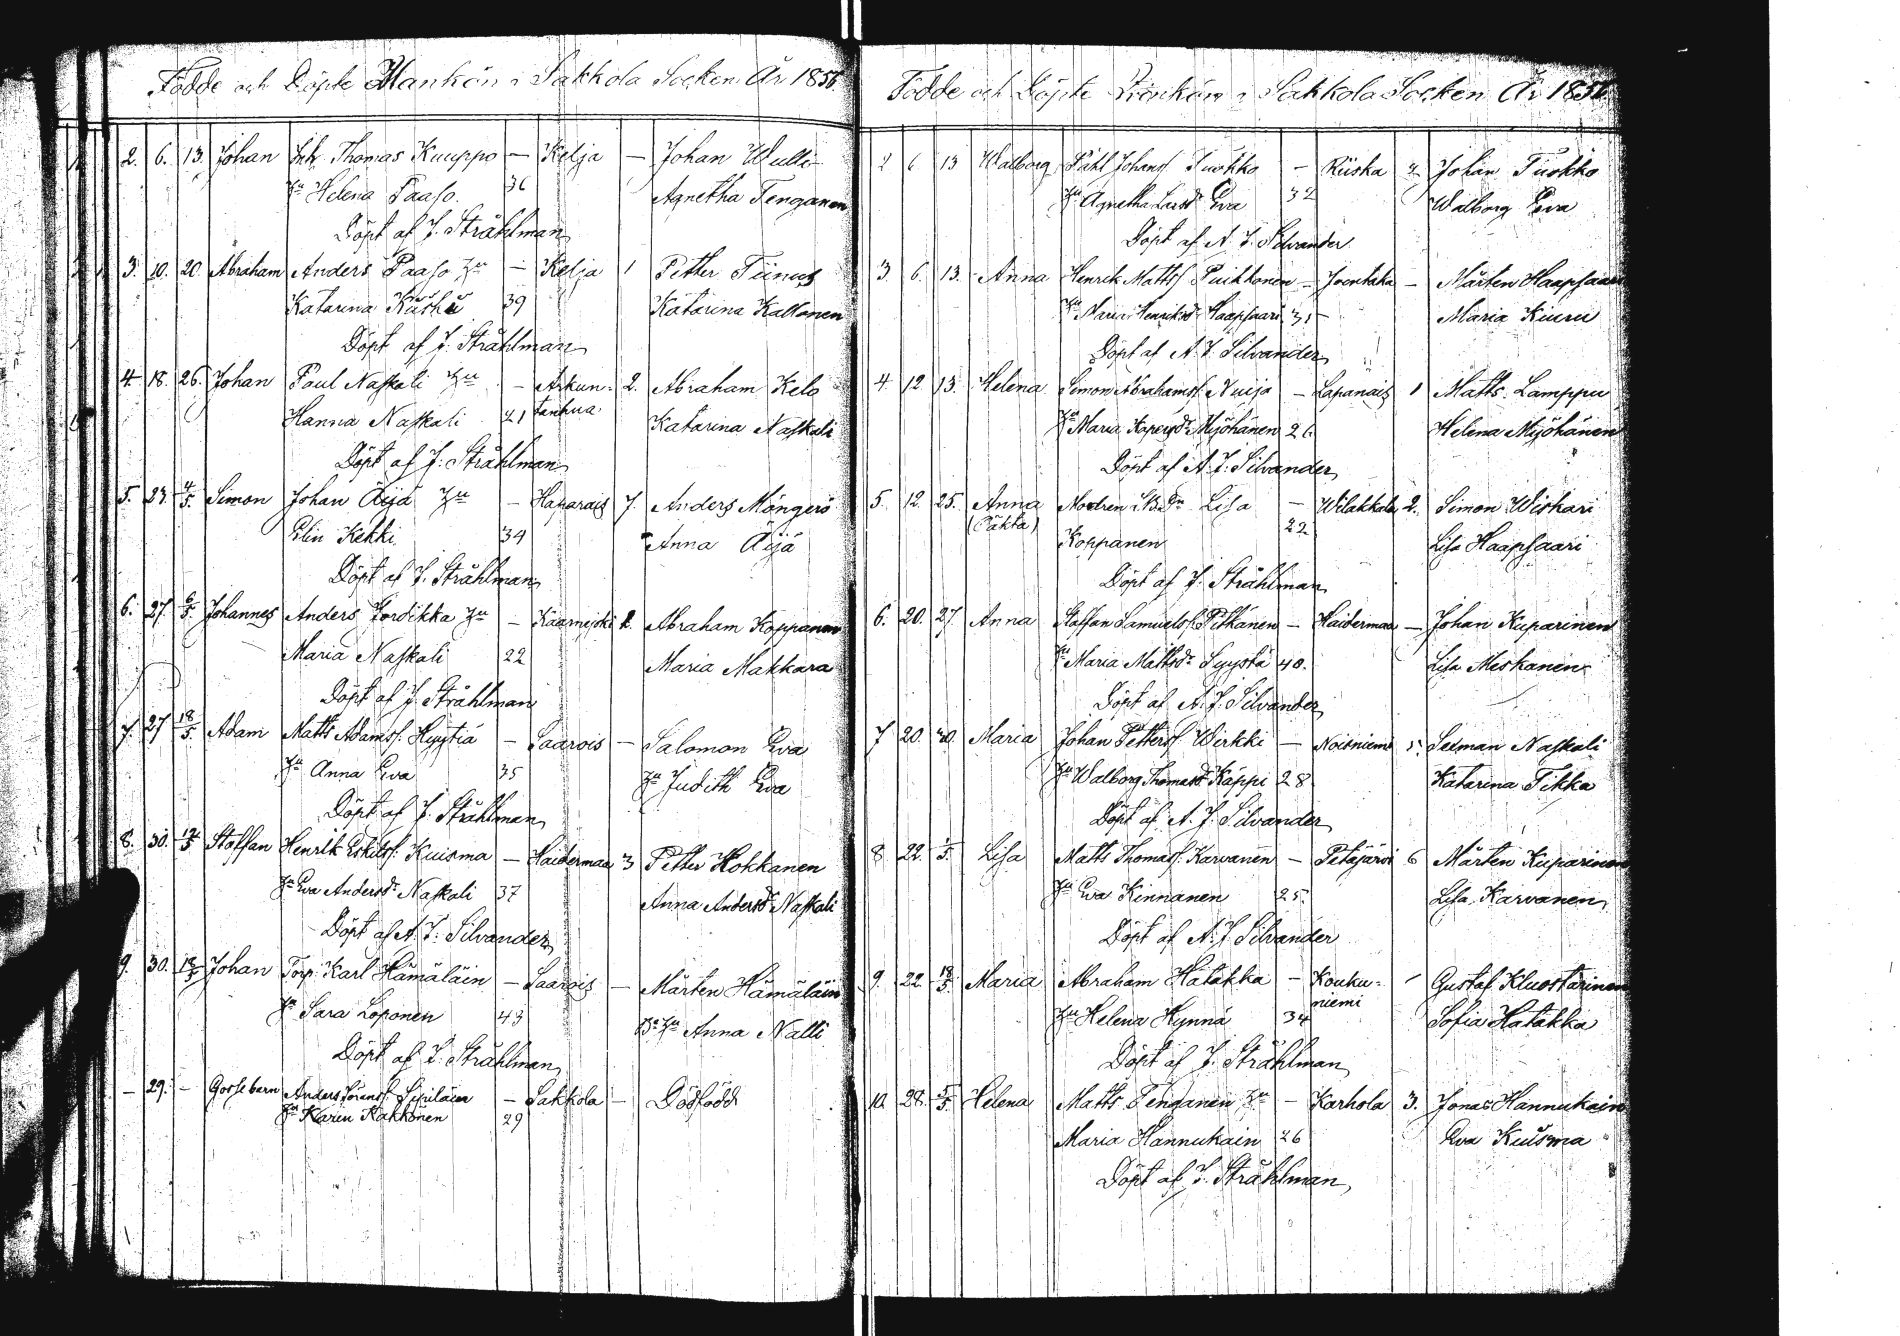 Födde och Döpte Mankön i Sakkola Socken År 1856.
2. 6. 13. Johan Inh. Thomas Kuuppo — Kelja — Johan Wulli
Hu Helena Paaso. 36 Agnetha Tenganen
Döpt af J. Stråhlman
3. 10. 20. Abraham Anders Paaso Hu — Kelja 1 Petter Tiinus
Katarina 39 Katarina Kallonen
Döpt af J. Stråhlman
4. 18. 26. Johan Paul Naskali Hu — Arkun- 2. Abraham Kelo
Hanna Naskali 21 tanhua. Katarina Naskali
Döpt af J. Stråhlman
5. 23. 4/5. Simon Johan Äijä Hu — Haparais 7. Anders Möngerö
Elin Kekki. 34 Anna Äijä
Döpt af J. Stråhlman
6. 27. 6/5. Johannes Anders Hu — 2. Abraham Koppanen
Maria Naskali 22 Maria Makkara
Döpt af J. Stråhlman
7. 27 18/5. Adam Matts Adamss. Hyytiä — Saarois — Salomon Eva
Hu Anna Eva 35 Hu Judith Eva
Döpt af J. Stråhlman
8. 30. Staffan Henrik Eskilss. Kuisma — Haidermaa 3 Petter Hokkanen
Hu Eva Andersdr Naskali 37 Anna Andersdr Naskali
Döpt af A. J. Silvander
9. 30. 18/5 Johan Torp. Karl Hämäläin — Saarois — Mårten Hämäläin
Hu Sara Loponen 43 Anna Nalli
Döpt af J. Stråhlman
— 29. — Gosse barn Anders — Sakkola — Dödfödd
Hu Karin Kakkonen 29
Födde och Döpte Qvinkön i Sakkola Socken År 1856.
2 6 13 Walborg Påhl Johanss. Tuokko — Riiska 2. Johan Tuokko
Hu Agnetha Larsdr Eva 32 Walborg Eva
Döpt af A. J. Silvander
3. 6. 13. Anna Henrik Mattss. Puikkonen — — Mårten Haapsaari
Hu Maria Henriksdr Haapsaari 31 Maria Kiuru
Döpt af A. J. Silvander
4 12 13. Helena Simon Abrahamss. Nuija — Lapanais 1 Matts Lamppu
Hu Maria Mijöhänen 26. Helena Mijöhänen
Döpt af A. J. Silvander
5. 12. 25. Anna Modren Lisa — Wilakkala 2. Simon Wiskari
(Oäkta) Koppanen 22 Lisa Haapsaari
Döpt af J. Stråhlman
6. 20. 27. Anna Staffan Samuelss. Pitkänen — Haidermaa — Johan Kuparinen
Hu Maria Mattsdr Syystä 40. Lisa Meskanen
Döpt af A. J. Silvander
7 20 30. Maria Johan Petterss. Wirkki — Noisniemi 5. Seeman Naskali
Hu Walborg Thomasdr Käppi 28 Katarina Tikka
Döpt af A. J. Silvander
8. 22. 1/5. Lisa Matts Thomass. Karvanen — Petäjärvi 6 Mårten Kuparinen
Hu Eva Kinnanen 25. Lisa Karvanen
Döpt af A. J. Silvander
9. 22. 18/5. Maria Abraham Hatakka — Konku- — Gustaf Kluostarinen
Hu Helena Hynnä 34 niemi Sofia Hatakka
Döpt af J. Stråhlman
10. 28. 5/5. Helena Matts Tenganen Hu — Karhola 3. Jonas Hannukain
Maria Hannukain 26 Eva Kuisma
Döpt af J. Stråhlman